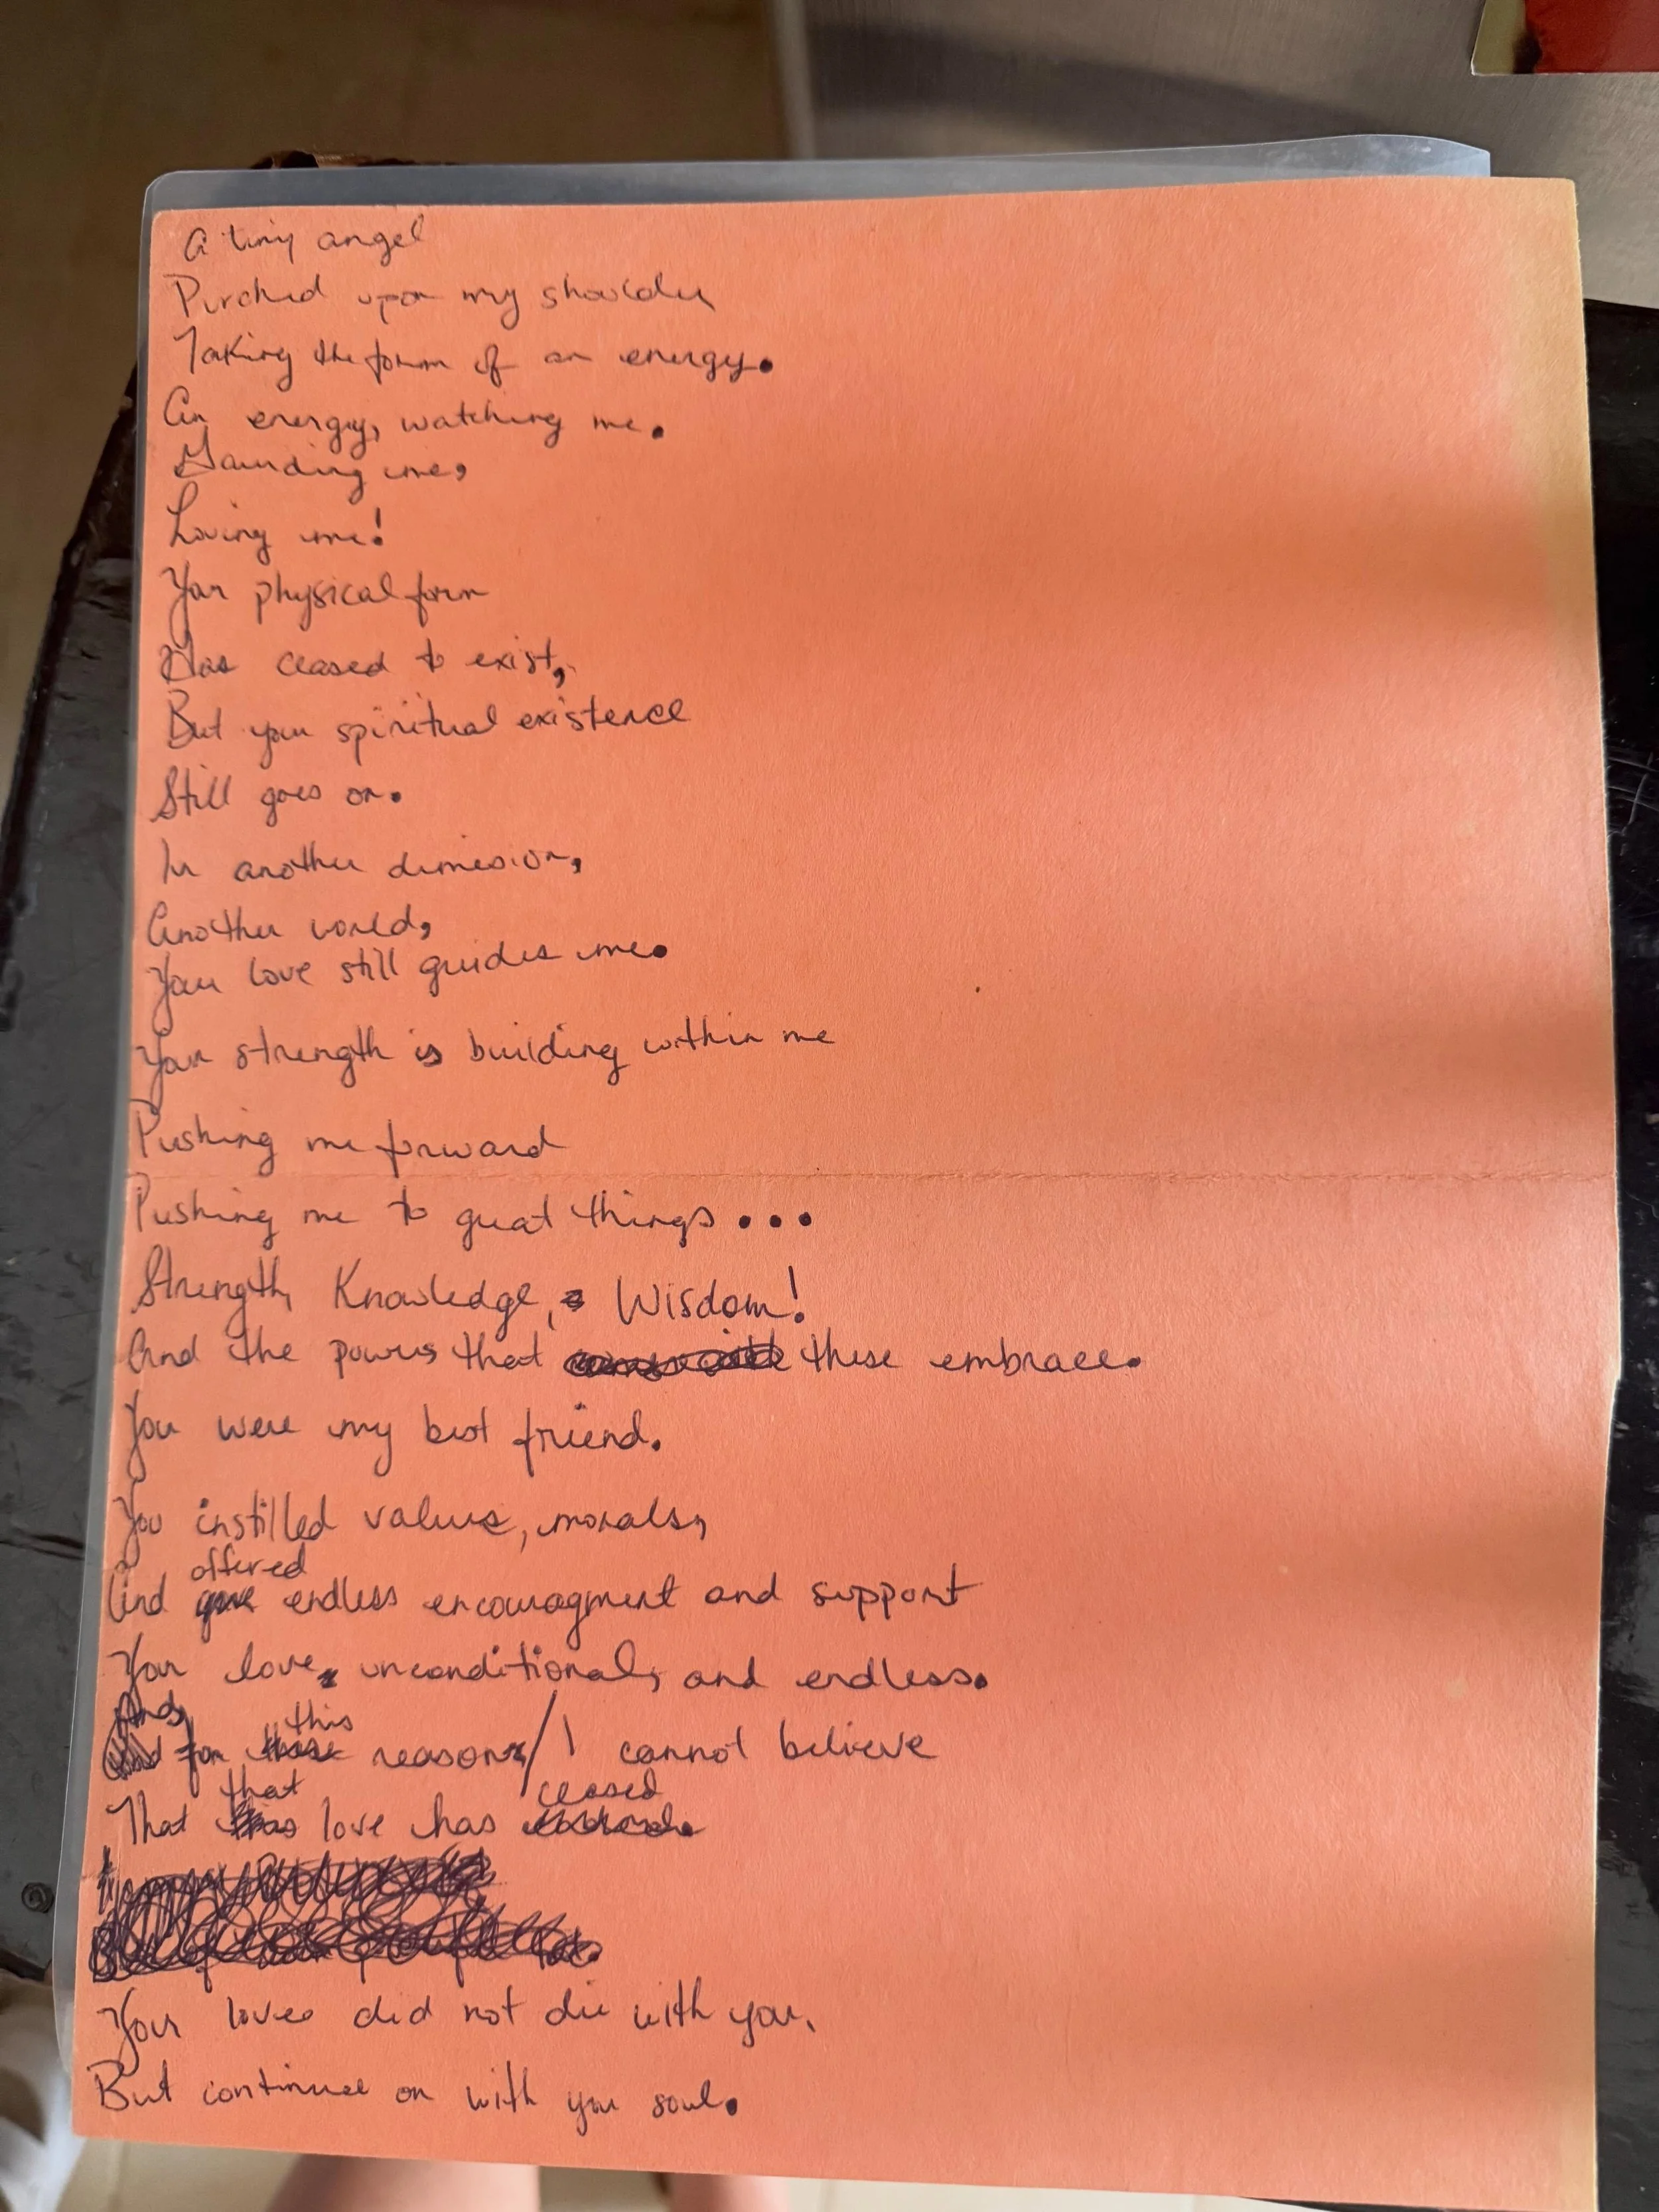 A tiny angel
Perched upon my shoulder
Taking the form of an energy.
An energy, watching me.
Guarding me,
Loving me!
Your physical form
Has ceased to exist,
But your spiritual existence
Still goes on.
In another dimesion,
Another world,
Your love still guides me.
Your strength is building within me
Pushing me forward
Pushing me to great things...
Strength, Knowledge, & Wisdom!
And the powers that these embrace.
You were my best friend.
You instilled values, morals,
offered
And gave endless encouragment and support
Your love, unconditional, and endless.
And, this
for these reasons/I cannot believe
that ceased
That this love has
Your love did not die with you,
But continues on with your soul.